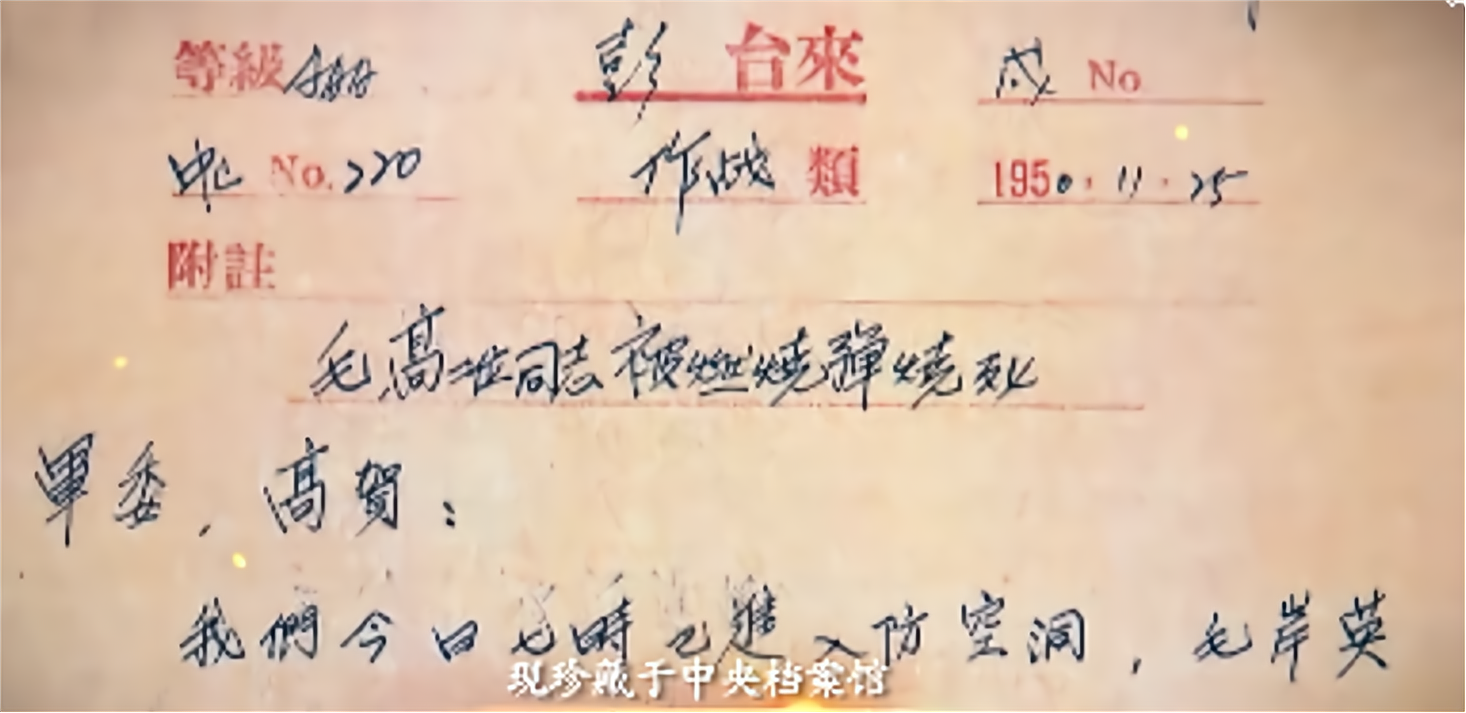 等級 AAAA 彭 台來 戌 No
No. 220 作战 類 1950.11.25
附註
毛、高二位同志被燃燒彈燒死
軍委，高賀：
我們今日七時已進入防空洞，毛岸英
现珍藏于中央档案馆